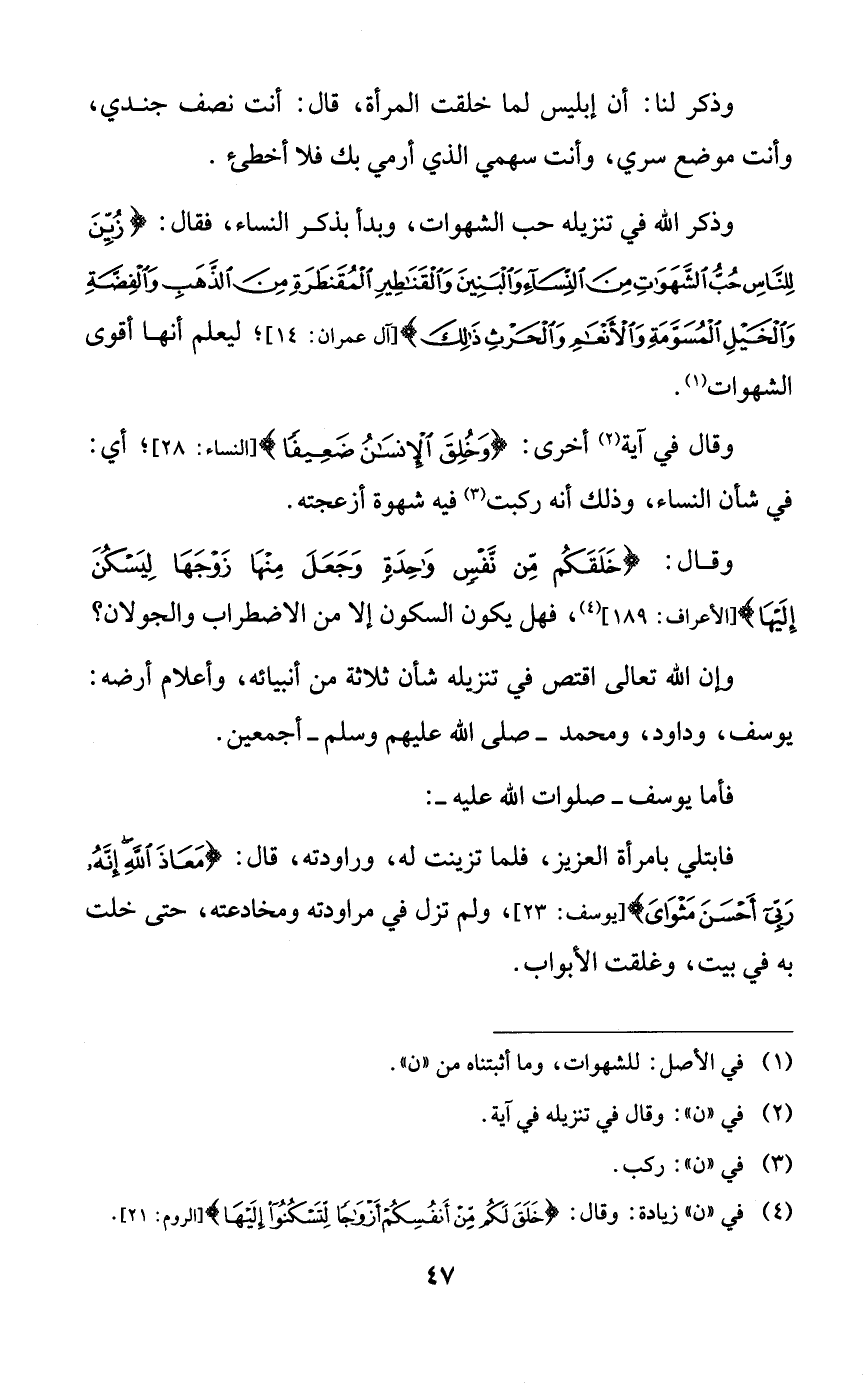 وذكر لنا: أن إبليس لما خلقت المرأة، قال: أنت نصف جنـدي،
وأنت موضع سري، وأنت سهمي الذي أرمي بك فلا أخطئ .
وذكر الله في تنزيله حب الشهوات، وبدأ بذكـر النساء، فقال: ﴿زُيِّنَ
لِلنَّاسِ حُبُّ ٱلشَّهَوَٰتِ مِنَ ٱلنِّسَآءِ وَٱلْبَنِينَ وَٱلْقَنَٰطِيرِ ٱلْمُقَنطَرَةِ مِنَ ٱلذَّهَبِ وَٱلْفِضَّةِ
وَٱلْخَيْلِ ٱلْمُسَوَّمَةِ وَٱلْأَنْعَٰمِ وَٱلْحَرْثِ ذَٰلِكَ﴾[آل عمران: ١٤]؛ ليعلم أنهـا أقوى
الشهوات(١).
وقال في آية(٢) أخرى: ﴿وَخُلِقَ ٱلْإِنسَٰنُ ضَعِيفًا﴾[النساء: ٢٨]؛ أي:
في شأن النساء، وذلك أنه ركبت(٣) فيه شهوة أزعجته.
وقـال: ﴿خَلَقَكُم مِّن نَّفْسٍ وَٰحِدَةٍ وَجَعَلَ مِنْهَا زَوْجَهَا لِيَسْكُنَ
إِلَيْهَا﴾[الأعراف: ١٨٩](٤)، فهل يكون السكون إلا من الاضطراب والجولان؟
وإن الله تعالى اقتص في تنزيله شأن ثلاثة من أنبيائه، وأعلام أرضه:
يوسف، وداود، ومحمد ـ صلى الله عليهم وسلم ـ أجمعين.
فأما يوسف ـ صلوات الله عليه ـ:
فابتلي بامرأة العزيز، فلما تزينت له، وراودته، قال: ﴿مَعَاذَ ٱللَّهِ إِنَّهُۥ
رَبِّىٓ أَحْسَنَ مَثْوَاىَ﴾[يوسف: ٢٣]، ولم تزل في مراودته ومخادعته، حتى خلت
به في بيت، وغلقت الأبواب.
(١) في الأصل: للشهوات، وما أثبتناه من «ن».
(٢) في «ن»: وقال في تنزيله في آية.
(٣) في «ن»: ركب.
(٤) في «ن» زيادة: وقال: ﴿خَلَقَ لَكُم مِّنْ أَنفُسِكُمْ أَزْوَٰجًا لِّتَسْكُنُوٓا۟ إِلَيْهَا﴾[الروم: ٢١].
٤٧